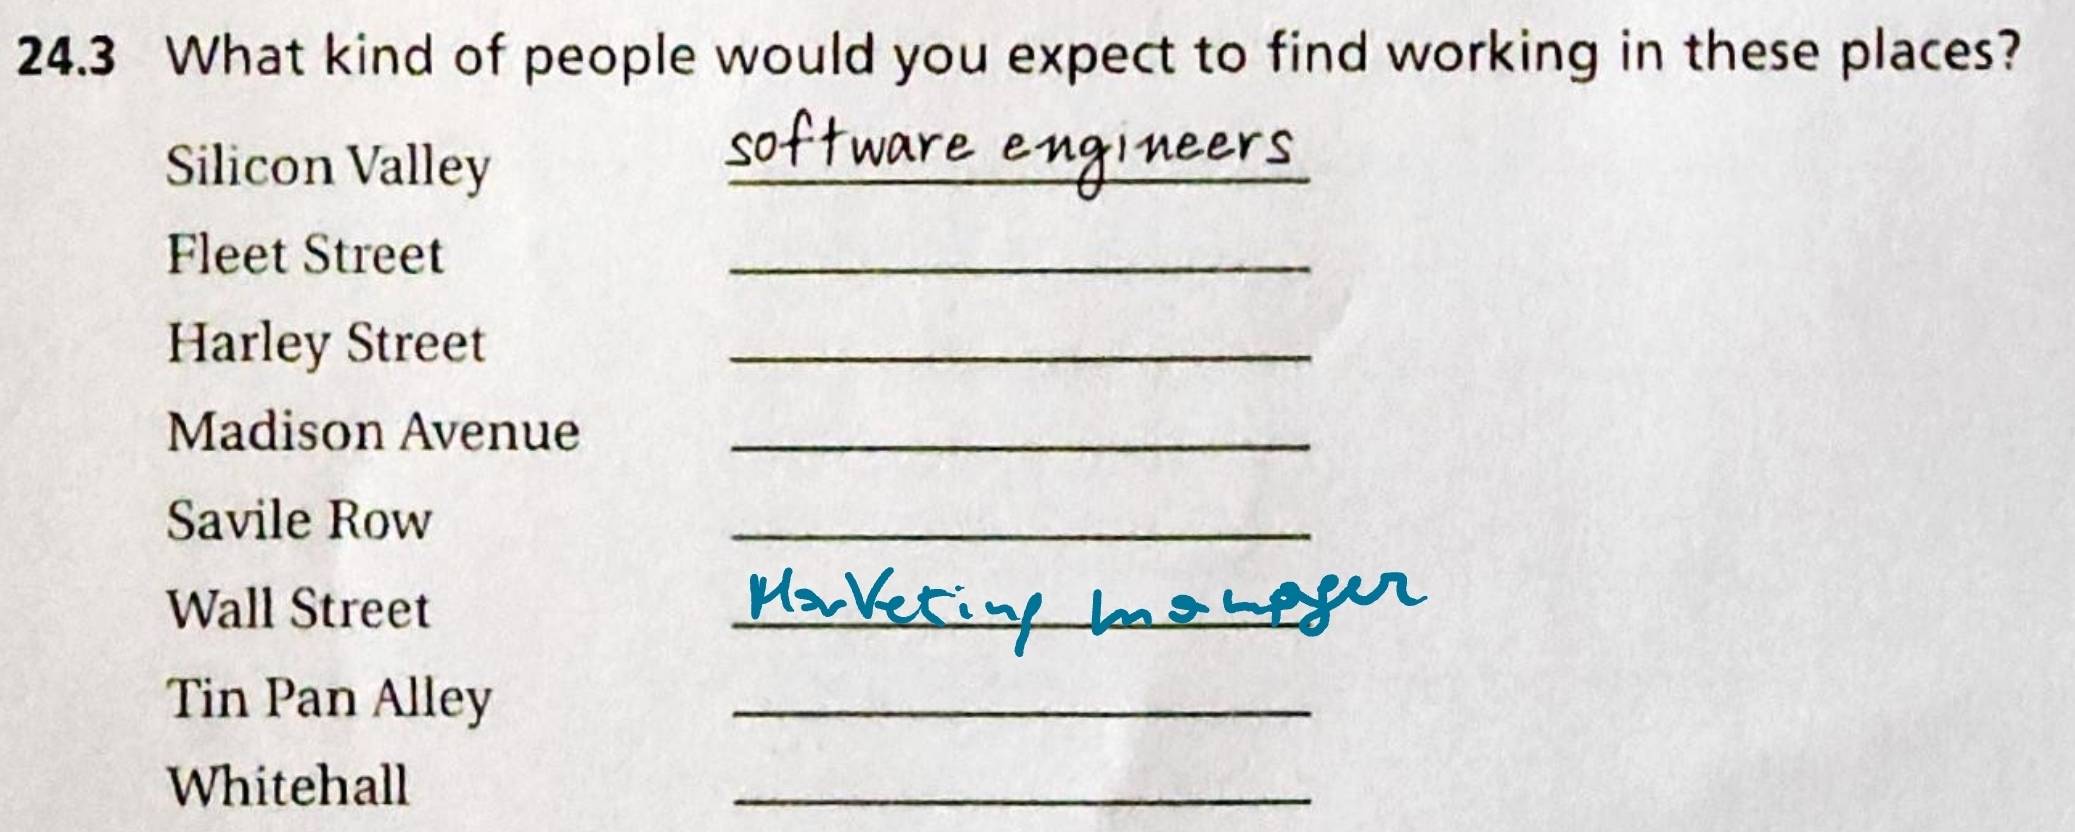 24.3 What kind of people would you expect to find working in these places?
Silicon Valley software engineers
Fleet Street
Harley Street
Madison Avenue
Savile Row
Wall Street Marketing manager
Tin Pan Alley
Whitehall